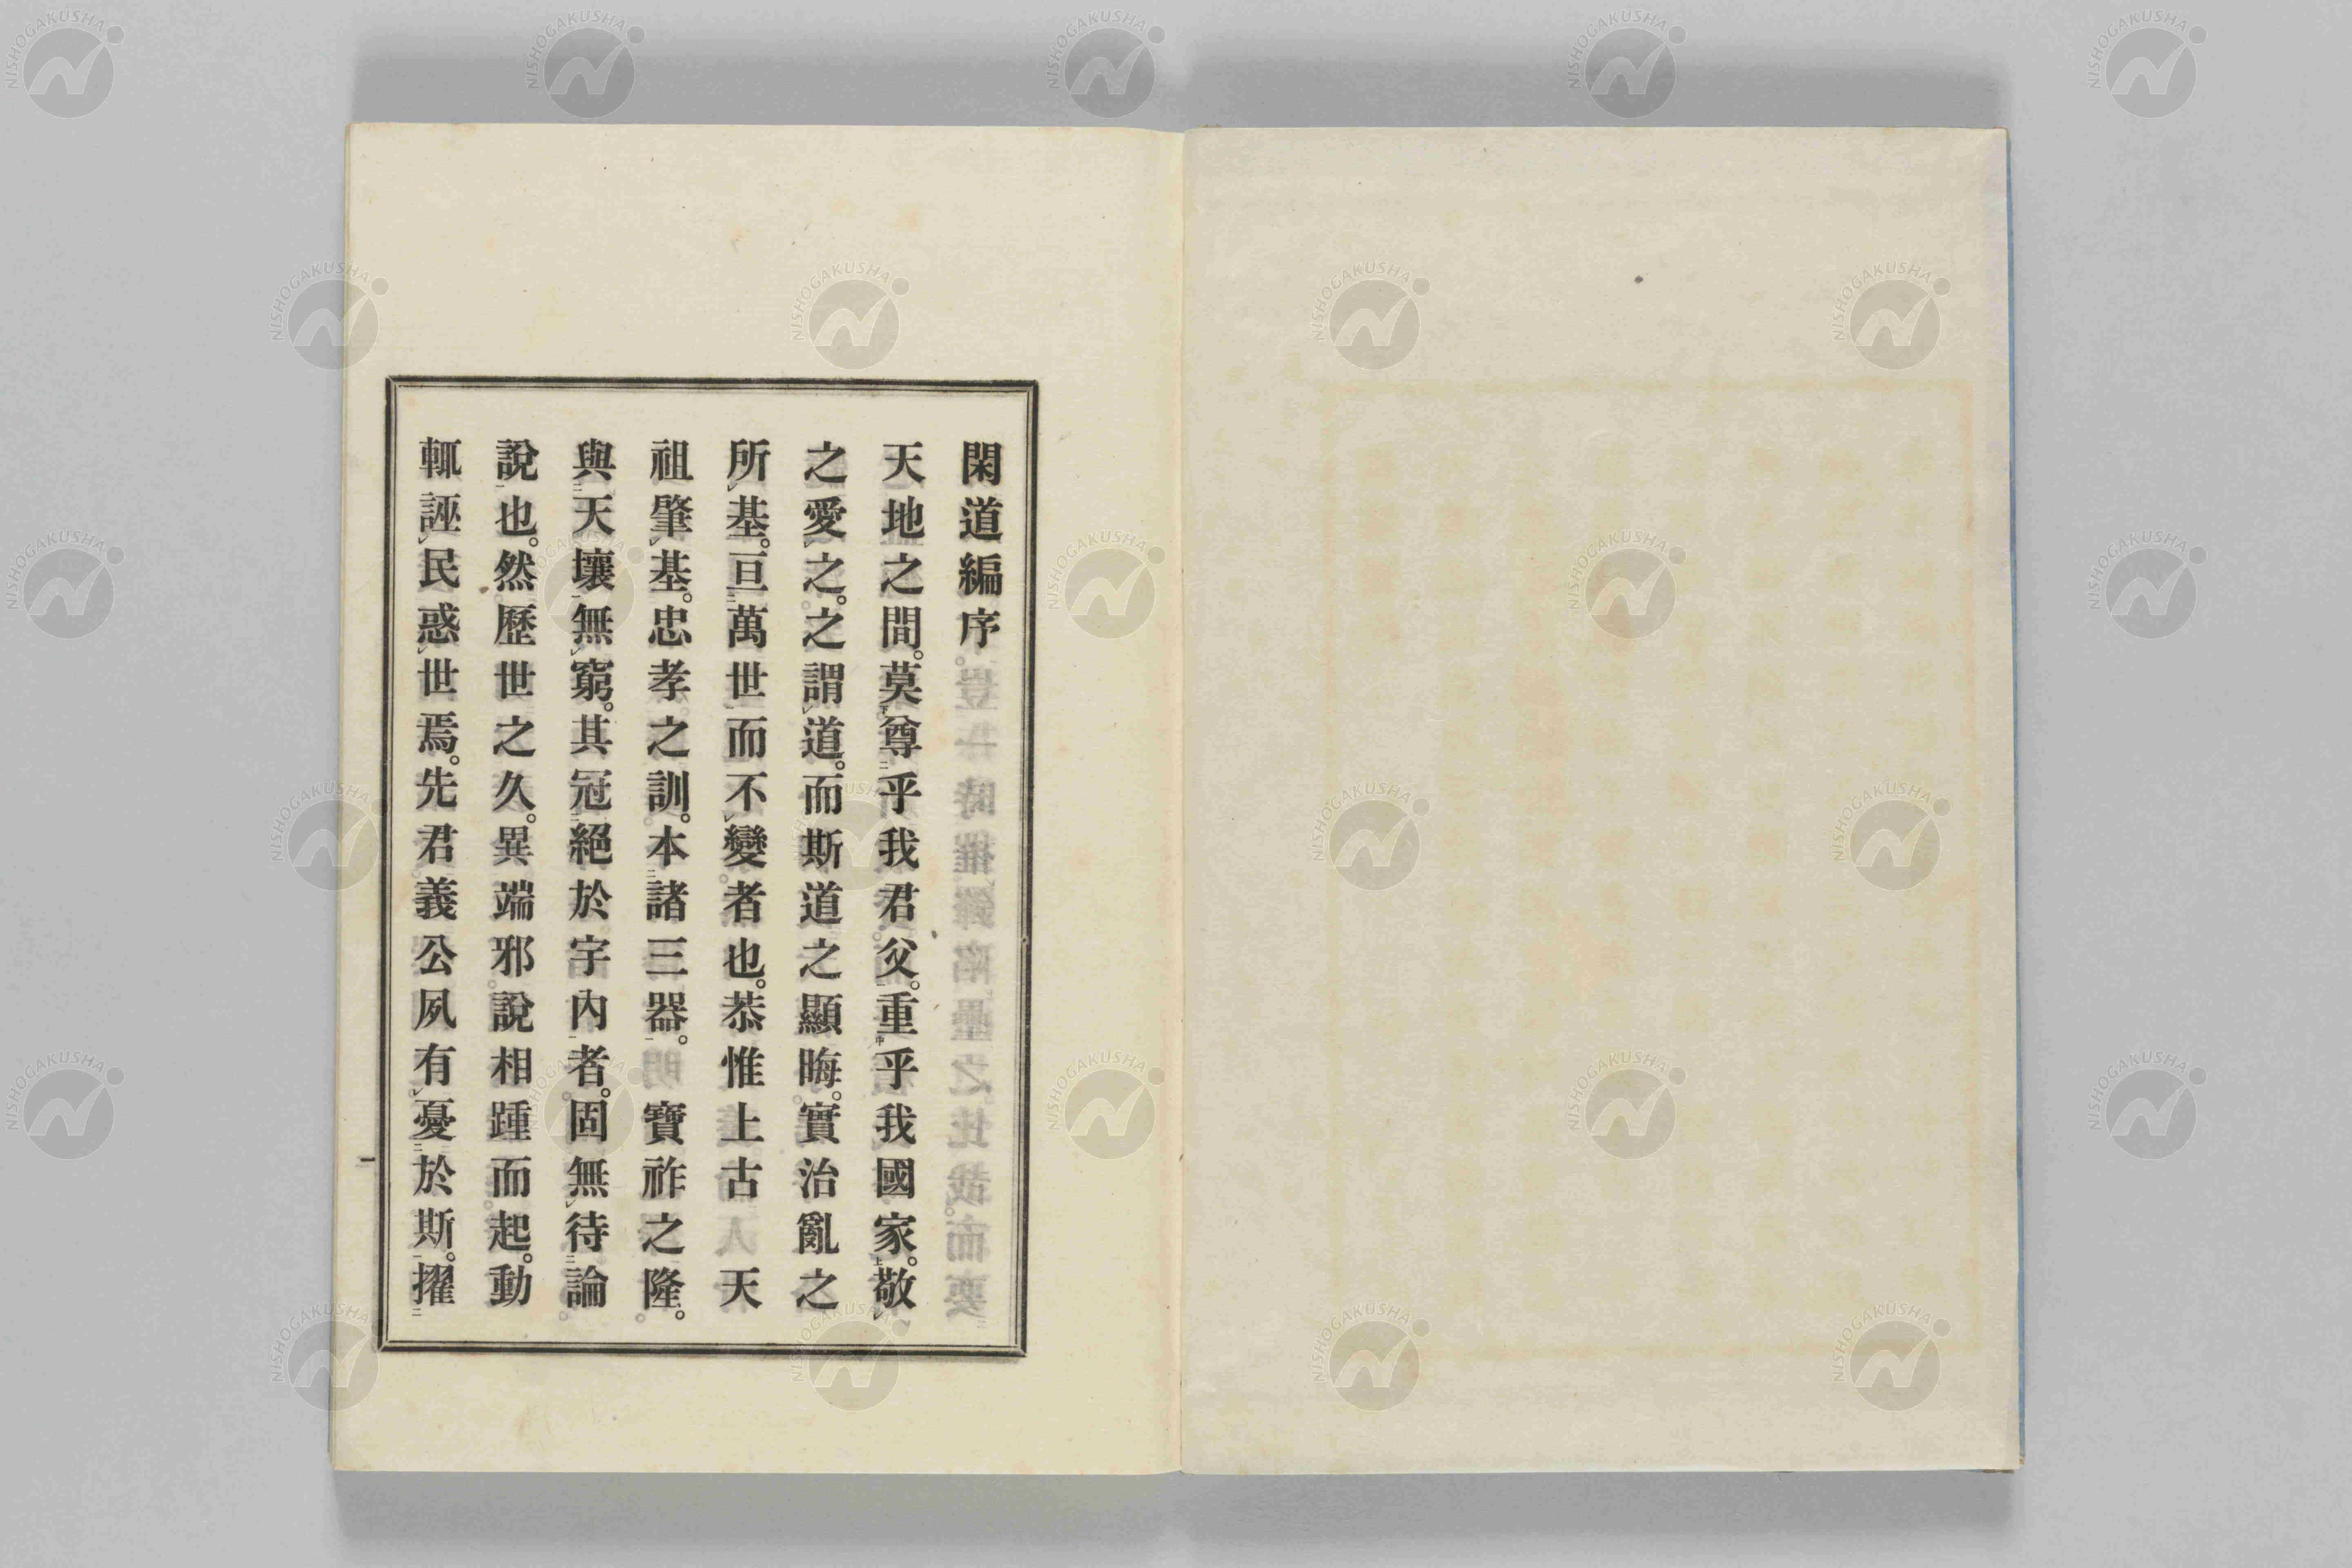 閑道編序
天地之間。莫尊乎我君父。重乎我國家。敬
之愛之。之謂道。而斯道之顯晦。實治亂之
所基。亘萬世而不變者也。恭惟上古天
祖肇基。忠孝之訓。本諸三器。寶祚之隆。
與天壤無窮。其冠絕於宇內者。固無待論
說也。然歷世之久。異端邪說相踵而起。動
輒誣民惑世焉。先君義公夙有憂於斯。擢
一